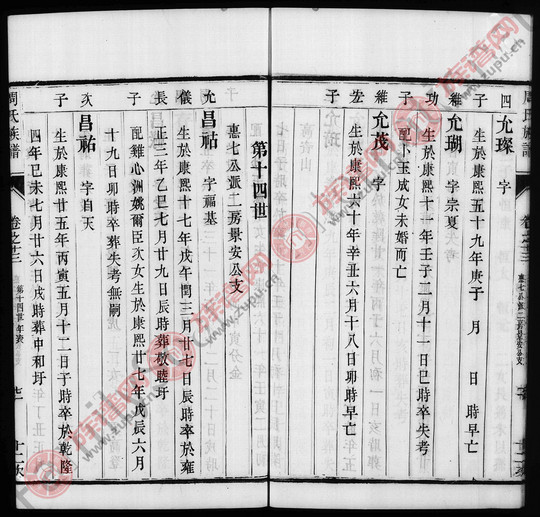 四 允璨 字
子 生於康熙五十九年庚子 月 日 時早亡
維 允瑚 字宗夏
功 生於康熙十一年壬子二月十一日巳時卒失考
子 配 玉成女未婚而亡
維 允茂 字
宏 生於康熙六十年辛丑六月十八日卯時早亡
子
第十四世
惠七公派二房景安公支
允 昌祜 字福基
儀 生於康熙十七年戊午閏三月廿七日辰時卒於雍
長 正三年乙巳七月廿九日辰時葬敬睦圩
子 配雞心洲姚爾臣次女生於康熙廿七年戊辰六月
十九日卯時卒葬失考無嗣
次 昌祐 字自天
子 生於康熙廿五年丙寅五月十二日子時卒於乾隆
四年己未七月廿六日戌時葬中和圩
周氏族譜
卷之三
第十四世年表
惠七公派二房景安公支
族譜网
www.zupu.cn